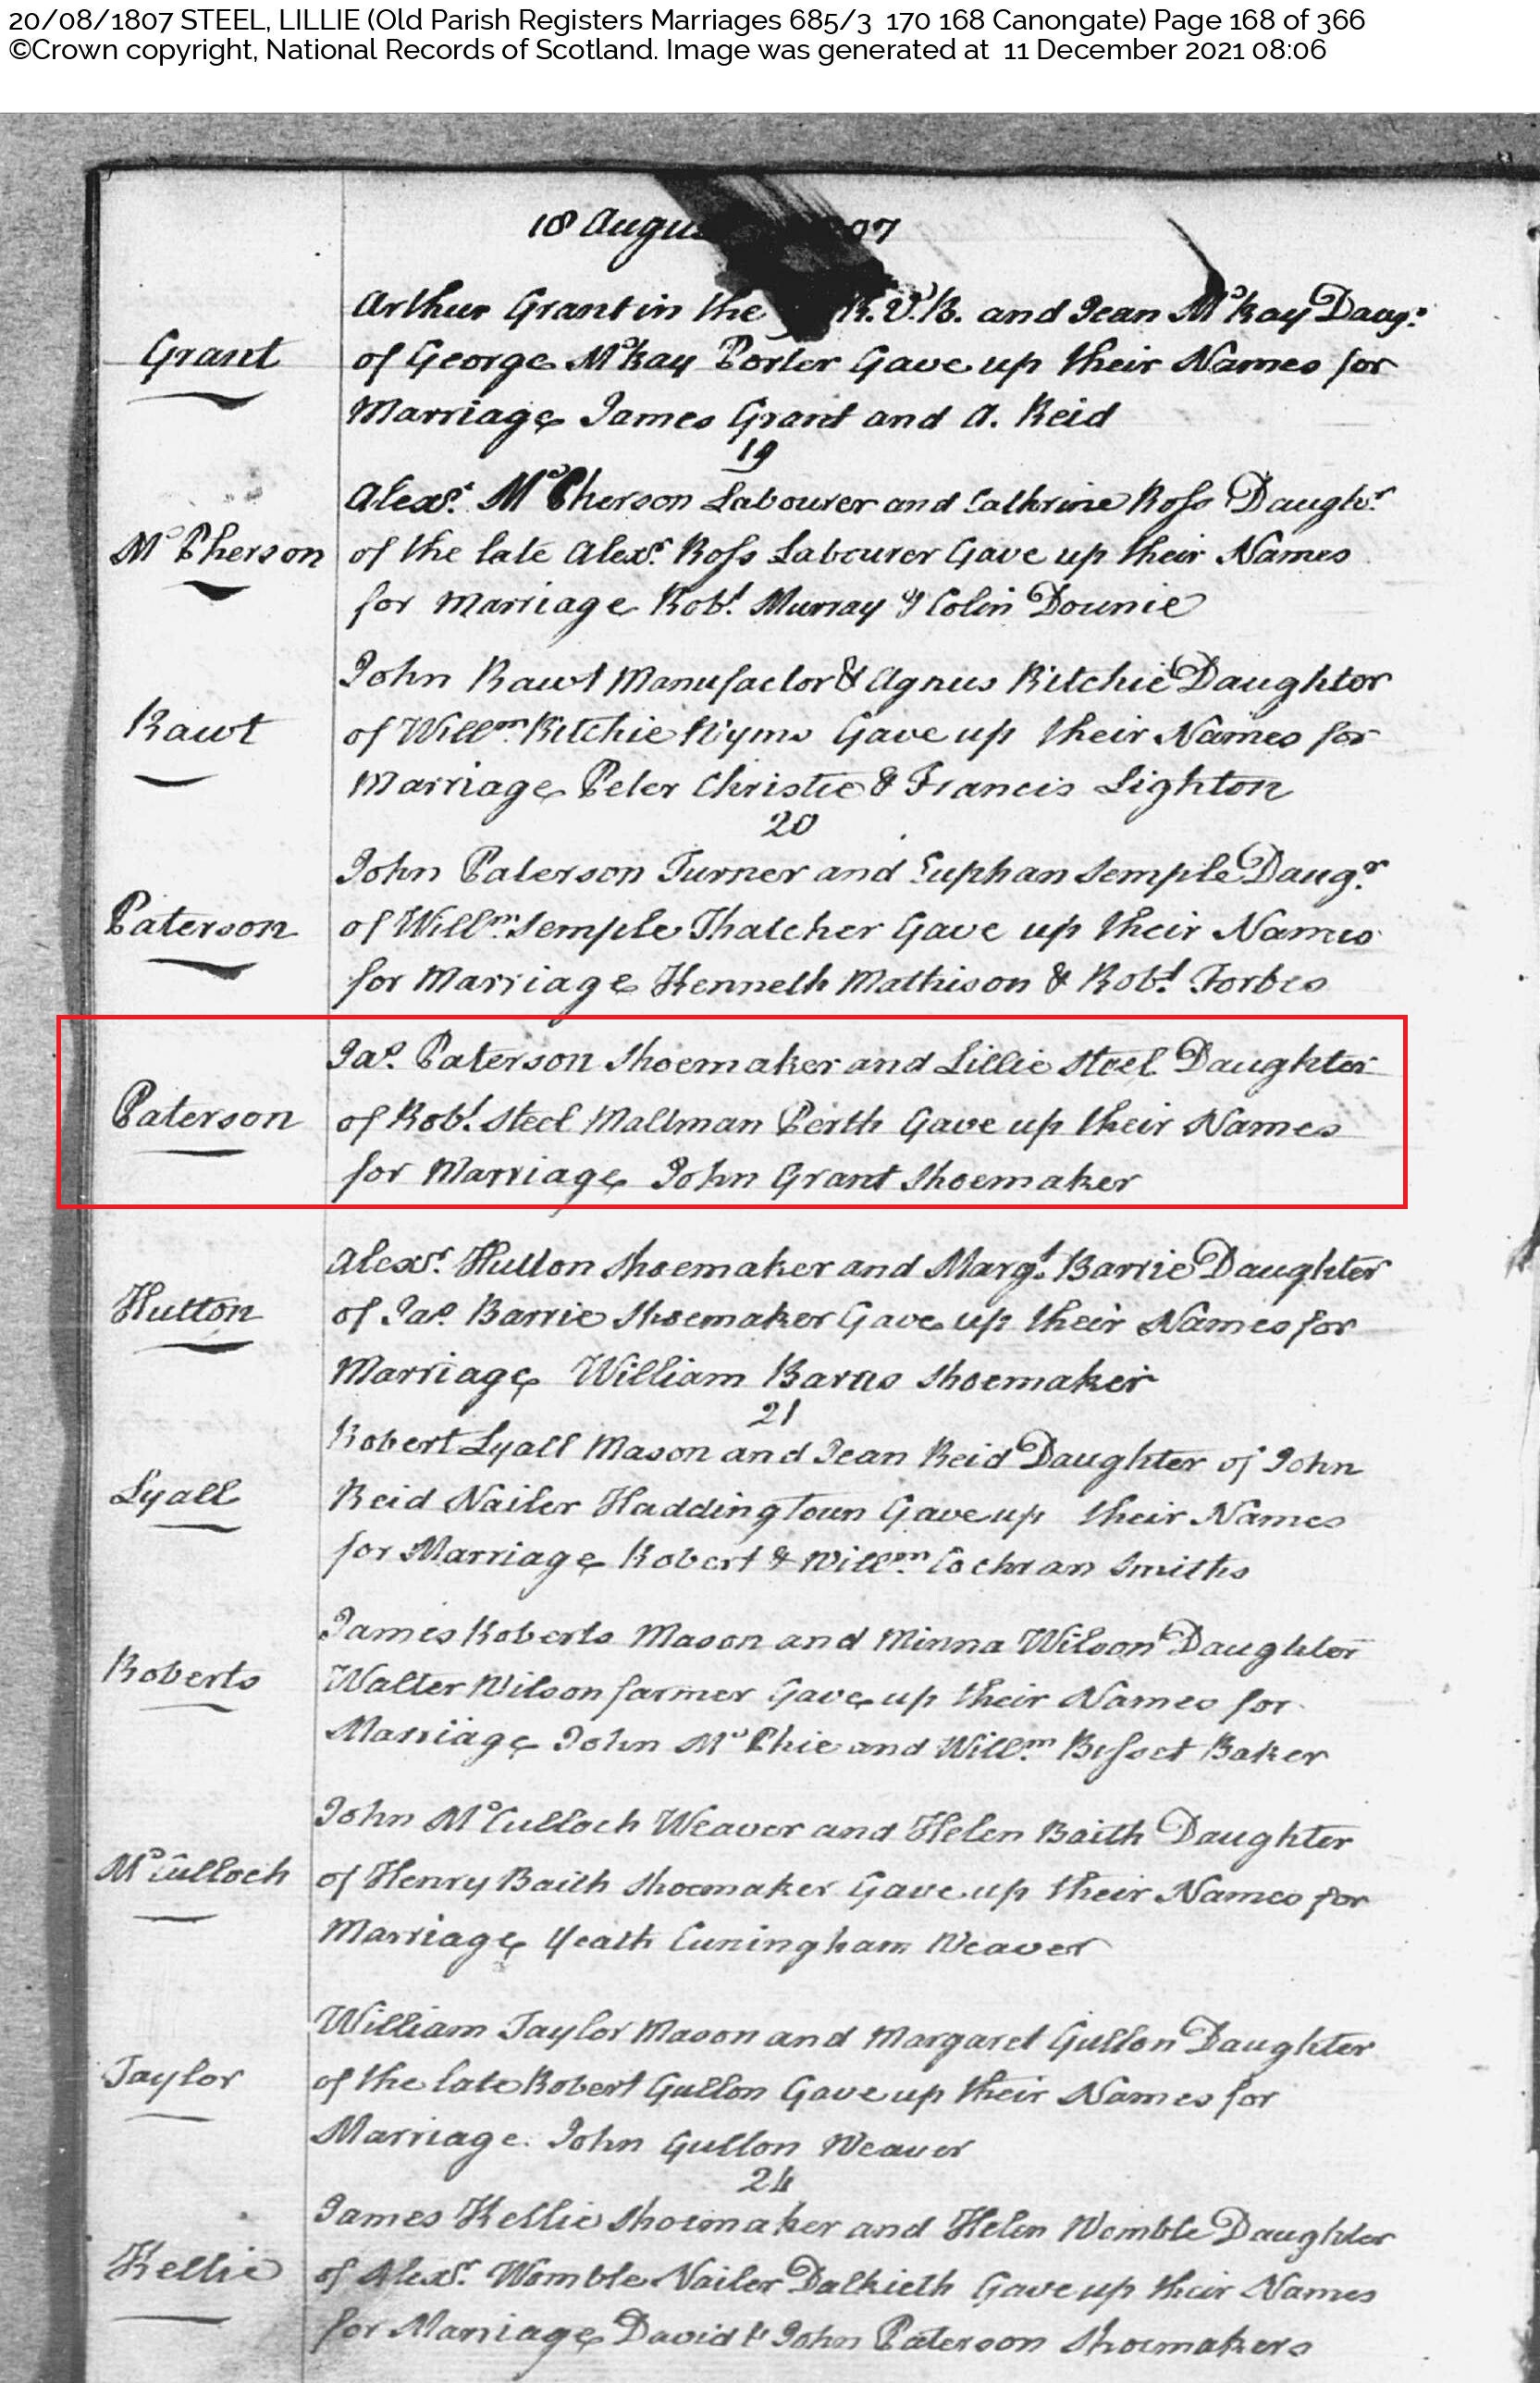 20/08/1807 STEEL, LILLIE (Old Parish Registers Marriages 685/3 170 168 Canongate) Page 168 of 366
©Crown copyright, National Records of Scotland. Image was generated at 11 December 2021 08:06
18 Augu 07
Arthur Grant in the R.V.B. and Jean McKay Daugr.
Grant
of George McKay Porter Gave up their Names for
Marriage James Grant and A. Reid
19
Alexr. McPherson Labourer and Cathrine Ross Daughr.
McPherson
of the late Alexr. Ross Labourer Gave up their Names
for Marriage Robt. Murray & Colin Dounie
John Rawt Manufactor & Agnus Ritchie Daughter
Rawt
of Willm. Ritchie Gave up their Names for
Marriage Peter Christie & Francis Lighton
20
John Paterson Turner and Euphan Semple Daugr.
Paterson
of Willm. Semple Thatcher Gave up their Names
for Marriage Kenneth Mathison & Robt. Forbes
Jas. Paterson Shoemaker and Lillie Steel Daughter
Paterson
of Robt. Steel Maltman Perth Gave up their Names
for Marriage John Grant Shoemaker
Alexr. Hutton Shoemaker and Margt. Barrie Daughter
Hutton
of Jas. Barrie Shoemaker Gave up their Names for
Marriage William Shoemaker
21
Robert Lyall Mason and Jean Reid Daughter of John
Lyall
Reid Nailer Haddingtoun Gave up their Names
for Marriage Robert & Willm. Cochran Smiths
James Roberts Mason and Minna Wilson Daughter
Roberts
Walter Wilson farmer Gave up their Names for
Marriage John McPhie and Willm. Bisset Baker
John McCulloch Weaver and Helen Baith Daughter
McCulloch
of Henry Baith Shoemaker Gave up their Names for
Marriage Cuningham Weaver
William Taylor Mason and Margaret Gullon Daughter
Taylor
of the late Robert Gullon Gave up their Names for
Marriage. John Gullon Weaver
24
James Kellie Shoemaker and Helen Womble Daughter
Kellie
of Alexr. Womble Nailer Dalkieth Gave up their Names
for Marriage David & John Paterson Shoemakers